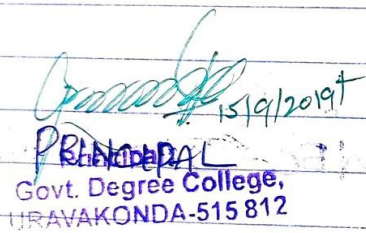 15/9/2019
PRINCIPAL
Principal
Govt. Degree College,
URAVAKONDA-515 812